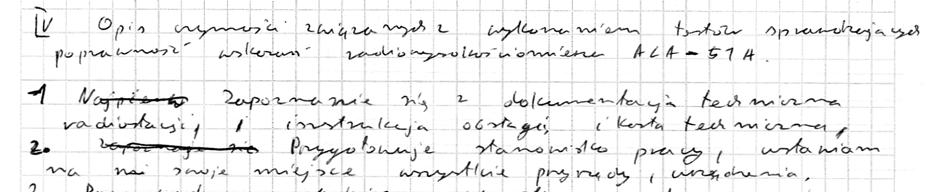 IV Opis czynności związanych z wykonaniem testów sprawdzających
poprawność wskazań radiowysokościomierza ALA-51A.
1 Zapoznanie się z dokumentacją techniczną
radiostacji, i instrukcją obsługi, i kartą techniczną,
2. Przygotowuje stanowisko pracy, ustawiam
na nim swoje miejsce wszystkie przyrządy, urządzenia.